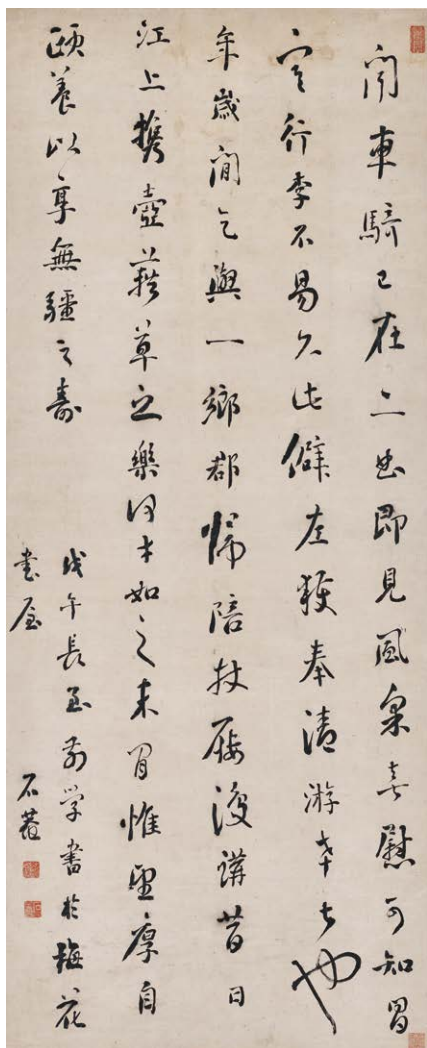 聞車騎已在二曲即見風采喜慰可知冒
寒行李不易久此僻左獲奉清游幸甚也
年歲間乞與一鄉郡歸陪杖屨復講昔日
江上攜壺藉草之樂何如之未間惟望厚自
頤養以享無疆之壽
戊午長至前學書於梅花
書屋
石菴